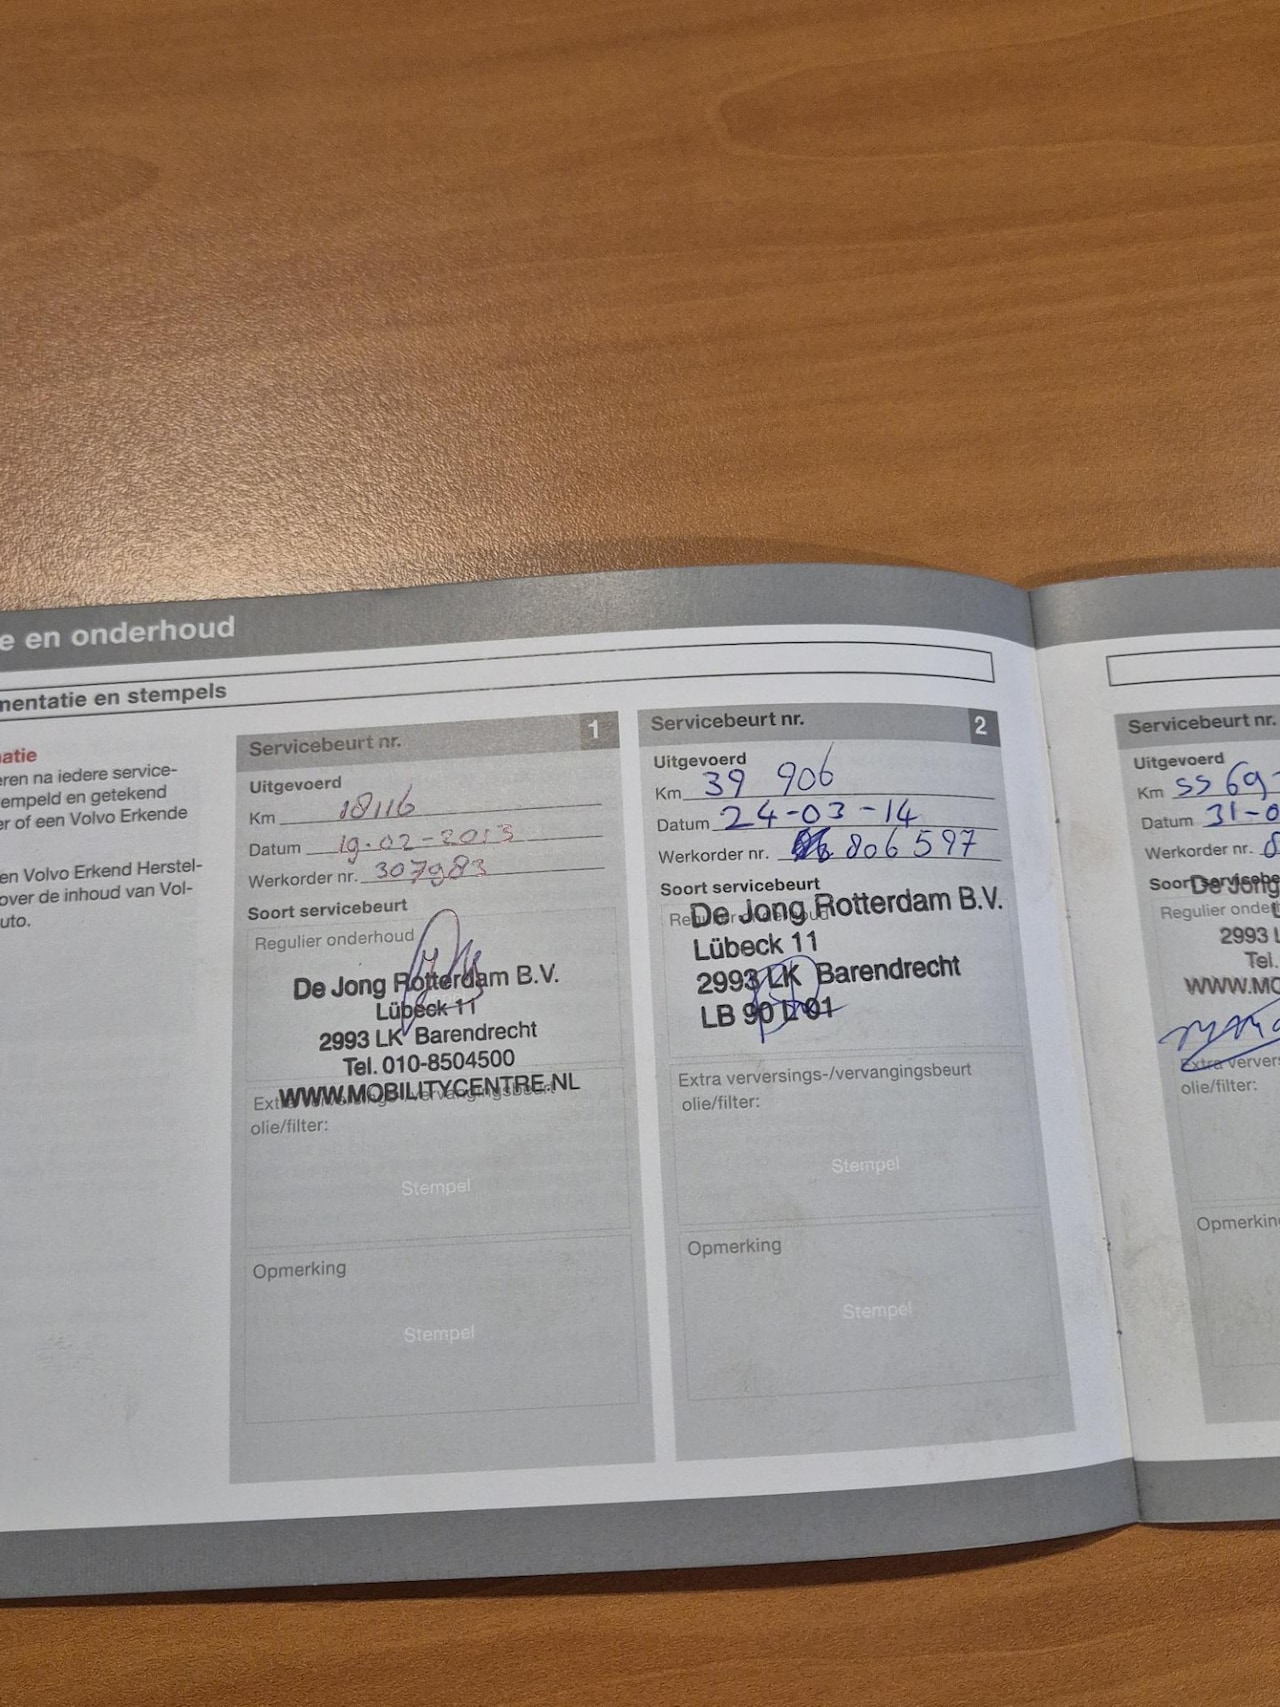 e en onderhoud
mentatie en stempels
atie
eren na iedere service-
empeld en getekend
er of een Volvo Erkende
en Volvo Erkend Herstel-
over de inhoud van Vol-
uto.
Servicebeurt nr. 1
Uitgevoerd
Km 18116
Datum 19-02-2013
Werkorder nr. 307983
Soort servicebeurt
Regulier onderhoud
De Jong Rotterdam B.V.
Lübeck 11
2993 LK Barendrecht
Tel. 010-8504500
WWW.MOBILITYCENTRE.NL
Extra verversings-/vervangingsbeurt
olie/filter:
Stempel
Opmerking
Stempel
Servicebeurt nr. 2
Uitgevoerd
Km 39 906
Datum 24-03-14
Werkorder nr. 806597
Soort servicebeurt
Regulier onderhoud
De Jong Rotterdam B.V.
Lübeck 11
2993 LK Barendrecht
LB 90 L 01
Extra verversings-/vervangingsbeurt
olie/filter:
Stempel
Opmerking
Stempel
Servicebeurt nr.
Uitgevoerd
Km 5569
Datum 31-0
Werkorder nr. 8
Soort servicebe
De Jong
Regulier onde
2993 L
Tel.
WWW.MO
Extra ververs
olie/filter:
Opmerkin